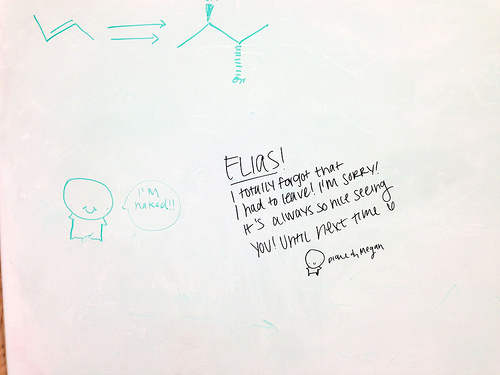 I'm
naked!!
ELIAS!
I totally forgot that
I had to leave! I'm SORRY!
It's always so nice seeing
you! Until next time
Megan